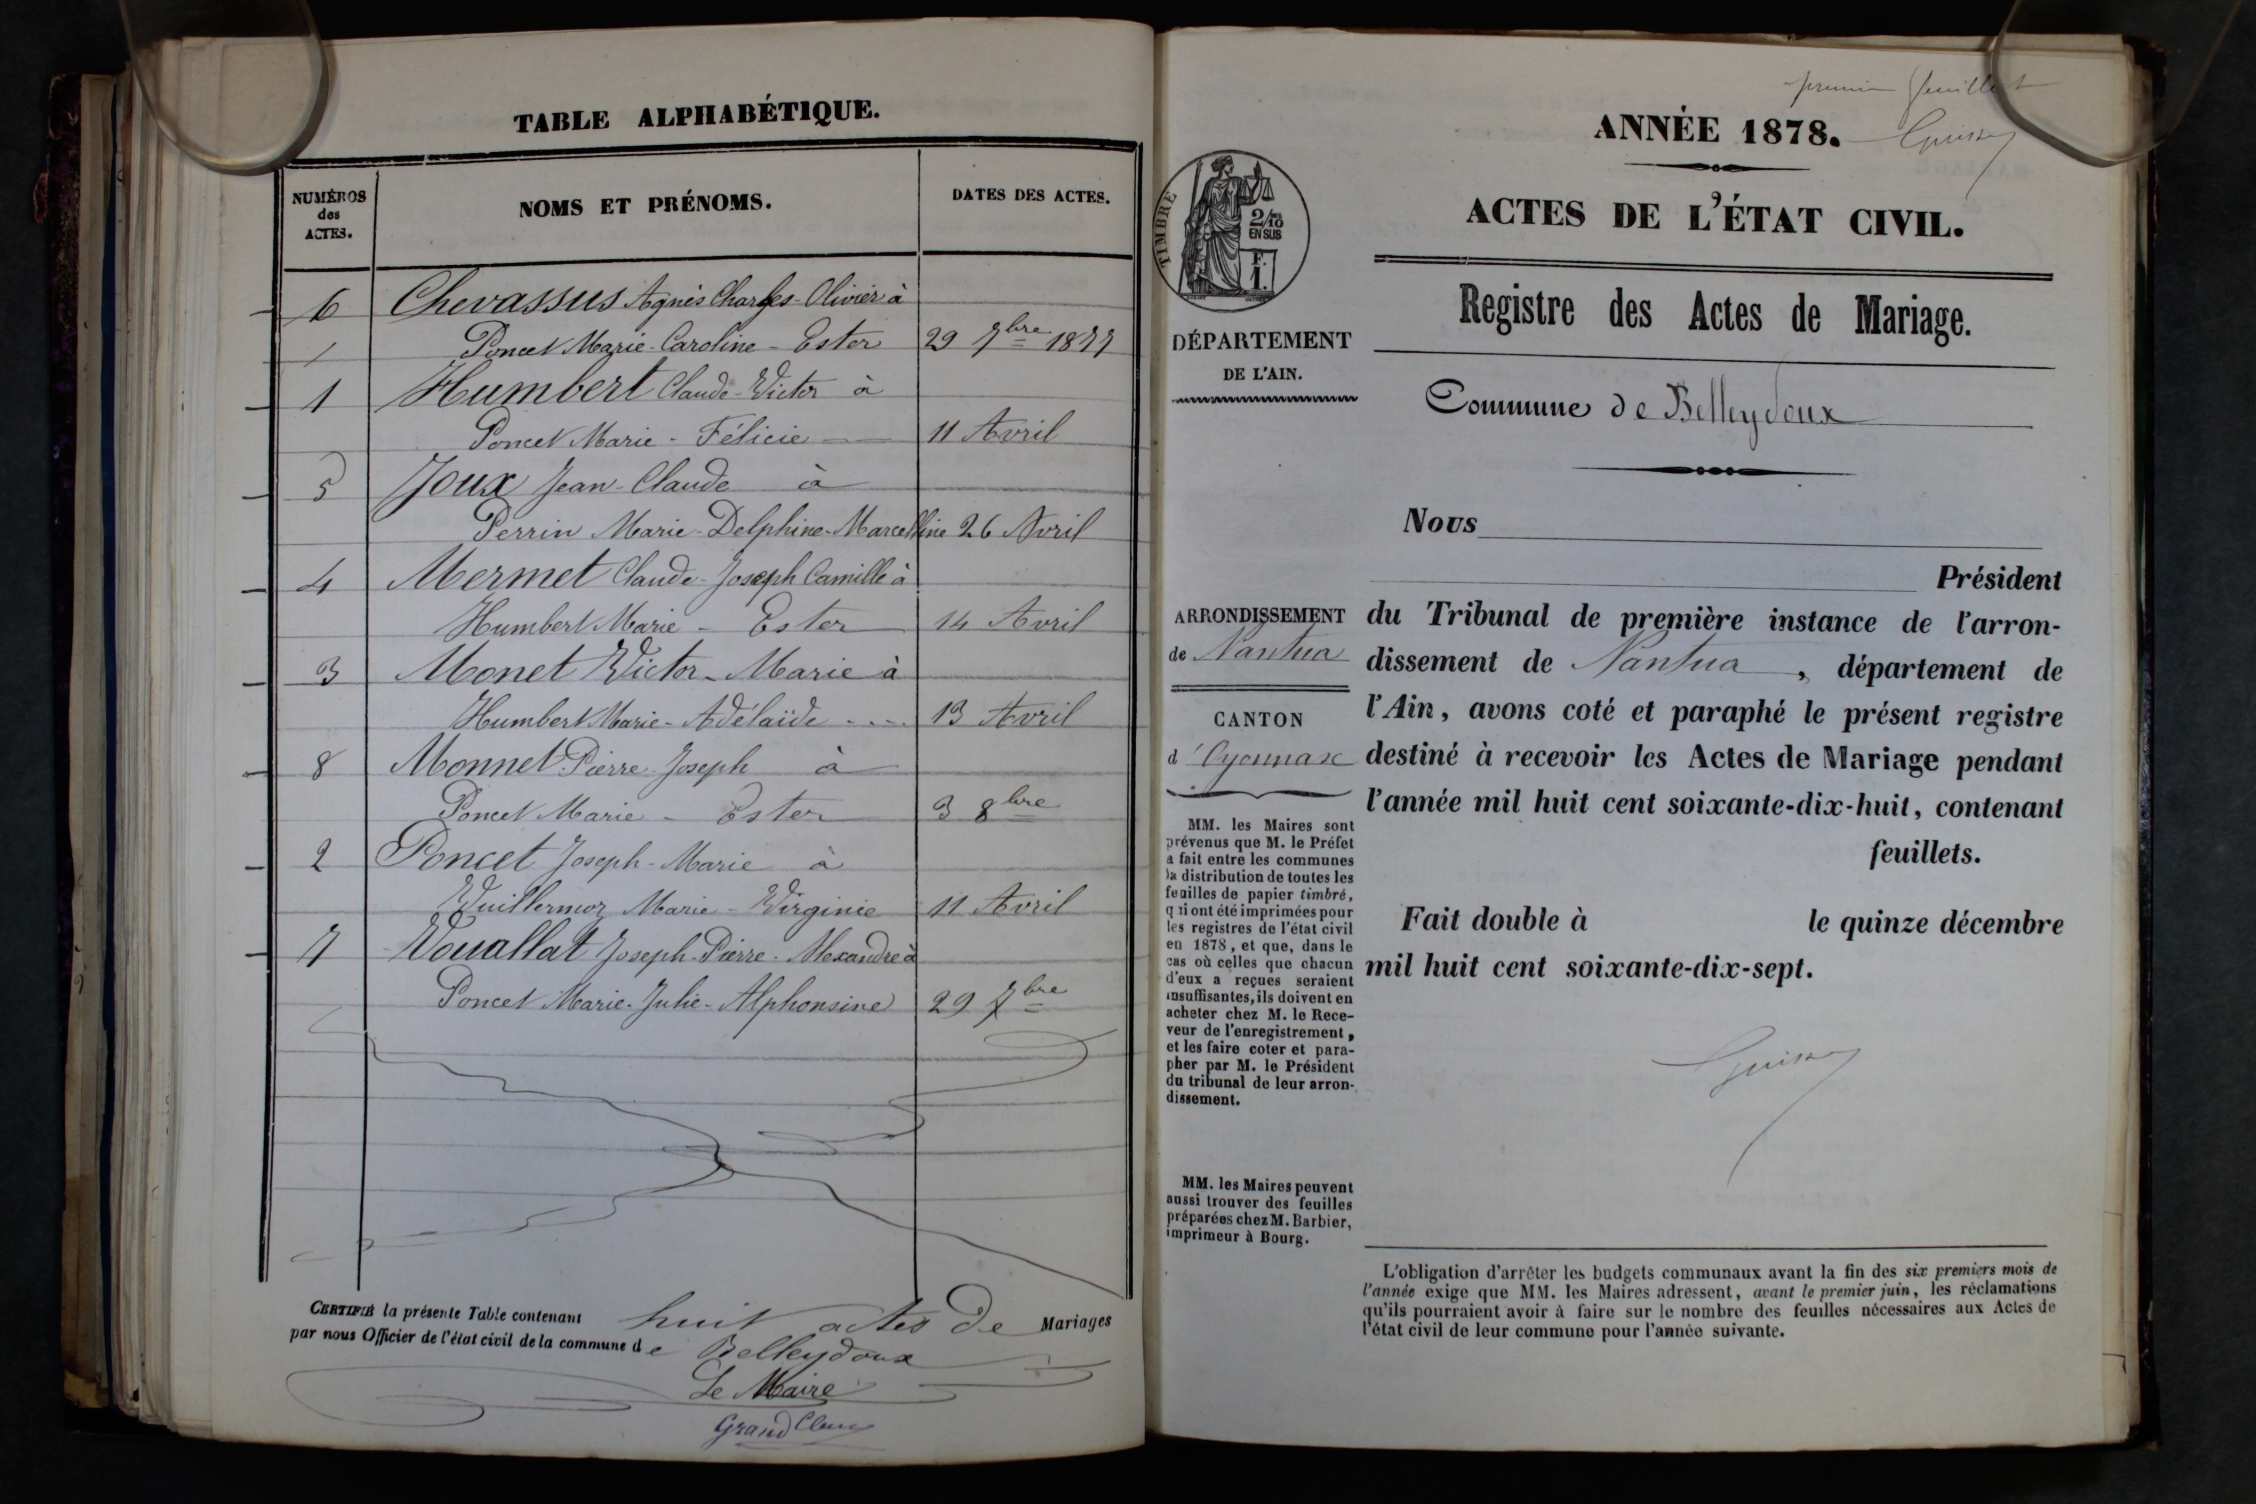 TABLE ALPHABÉTIQUE.
NUMÉROS
des
ACTES.
NOMS ET PRÉNOMS.
DATES DES ACTES.
6 Chevassus Agnès Charles-Olivier à
Poncet Marie-Caroline-Ester 29 7bre 1877
1 Humbert Claude-Victor à
Poncet Marie-Félicie 11 Avril
5 Joux Jean-Claude à
Perrin Marie-Delphine-Marcelline 26 Avril
4 Mermet Claude-Joseph Camille à
Humbert Marie-Ester 14 Avril
3 Monet Victor-Marie à
Humbert Marie-Adélaïde 13 Avril
8 Monnet Pierre-Joseph à
Poncet Marie-Ester 3 8bre
2 Poncet Joseph-Marie à
Vuillermoz Marie-Virginie 11 Avril
7 Vouallat Joseph-Pierre-Alexandre à
Poncet Marie-Julie-Alphonsine 29 7bre
CERTIFIÉ la présente Table contenant huit actes de Mariages
par nous Officier de l'état civil de la commune de Belleydoux
Le Maire
Grandclem
premier feuillet
ANNÉE 1878.
ACTES DE L'ÉTAT CIVIL.
TIMBRE
2/10
EN SUS
F.
1.
DÉPARTEMENT
DE L'AIN.
Registre des Actes de Mariage.
Commune de Belleydoux
Nous
Président
du Tribunal de première instance de l'arron-
dissement de Nantua, département de
l'Ain, avons coté et paraphé le présent registre
destiné à recevoir les Actes de Mariage pendant
l'année mil huit cent soixante-dix-huit, contenant
feuillets.
Fait double à le quinze décembre
mil huit cent soixante-dix-sept.
ARRONDISSEMENT
de Nantua
CANTON
d'Oyonnax
MM. les Maires sont
prévenus que M. le Préfet
a fait entre les communes
la distribution de toutes les
feuilles de papier timbré,
qui ont été imprimées pour
les registres de l'état civil
en 1878, et que, dans le
cas où celles que chacun
d'eux a reçues seraient
insuffisantes, ils doivent en
acheter chez M. le Rece-
veur de l'enregistrement,
et les faire coter et para-
pher par M. le Président
du tribunal de leur arron-
dissement.
MM. les Maires peuvent
aussi trouver des feuilles
préparées chez M. Barbier,
imprimeur à Bourg.
L'obligation d'arrêter les budgets communaux avant la fin des six premiers mois de
l'année exige que MM. les Maires adressent, avant le premier juin, les réclamations
qu'ils pourraient avoir à faire sur le nombre des feuilles nécessaires aux Actes de
l'état civil de leur commune pour l'année suivante.